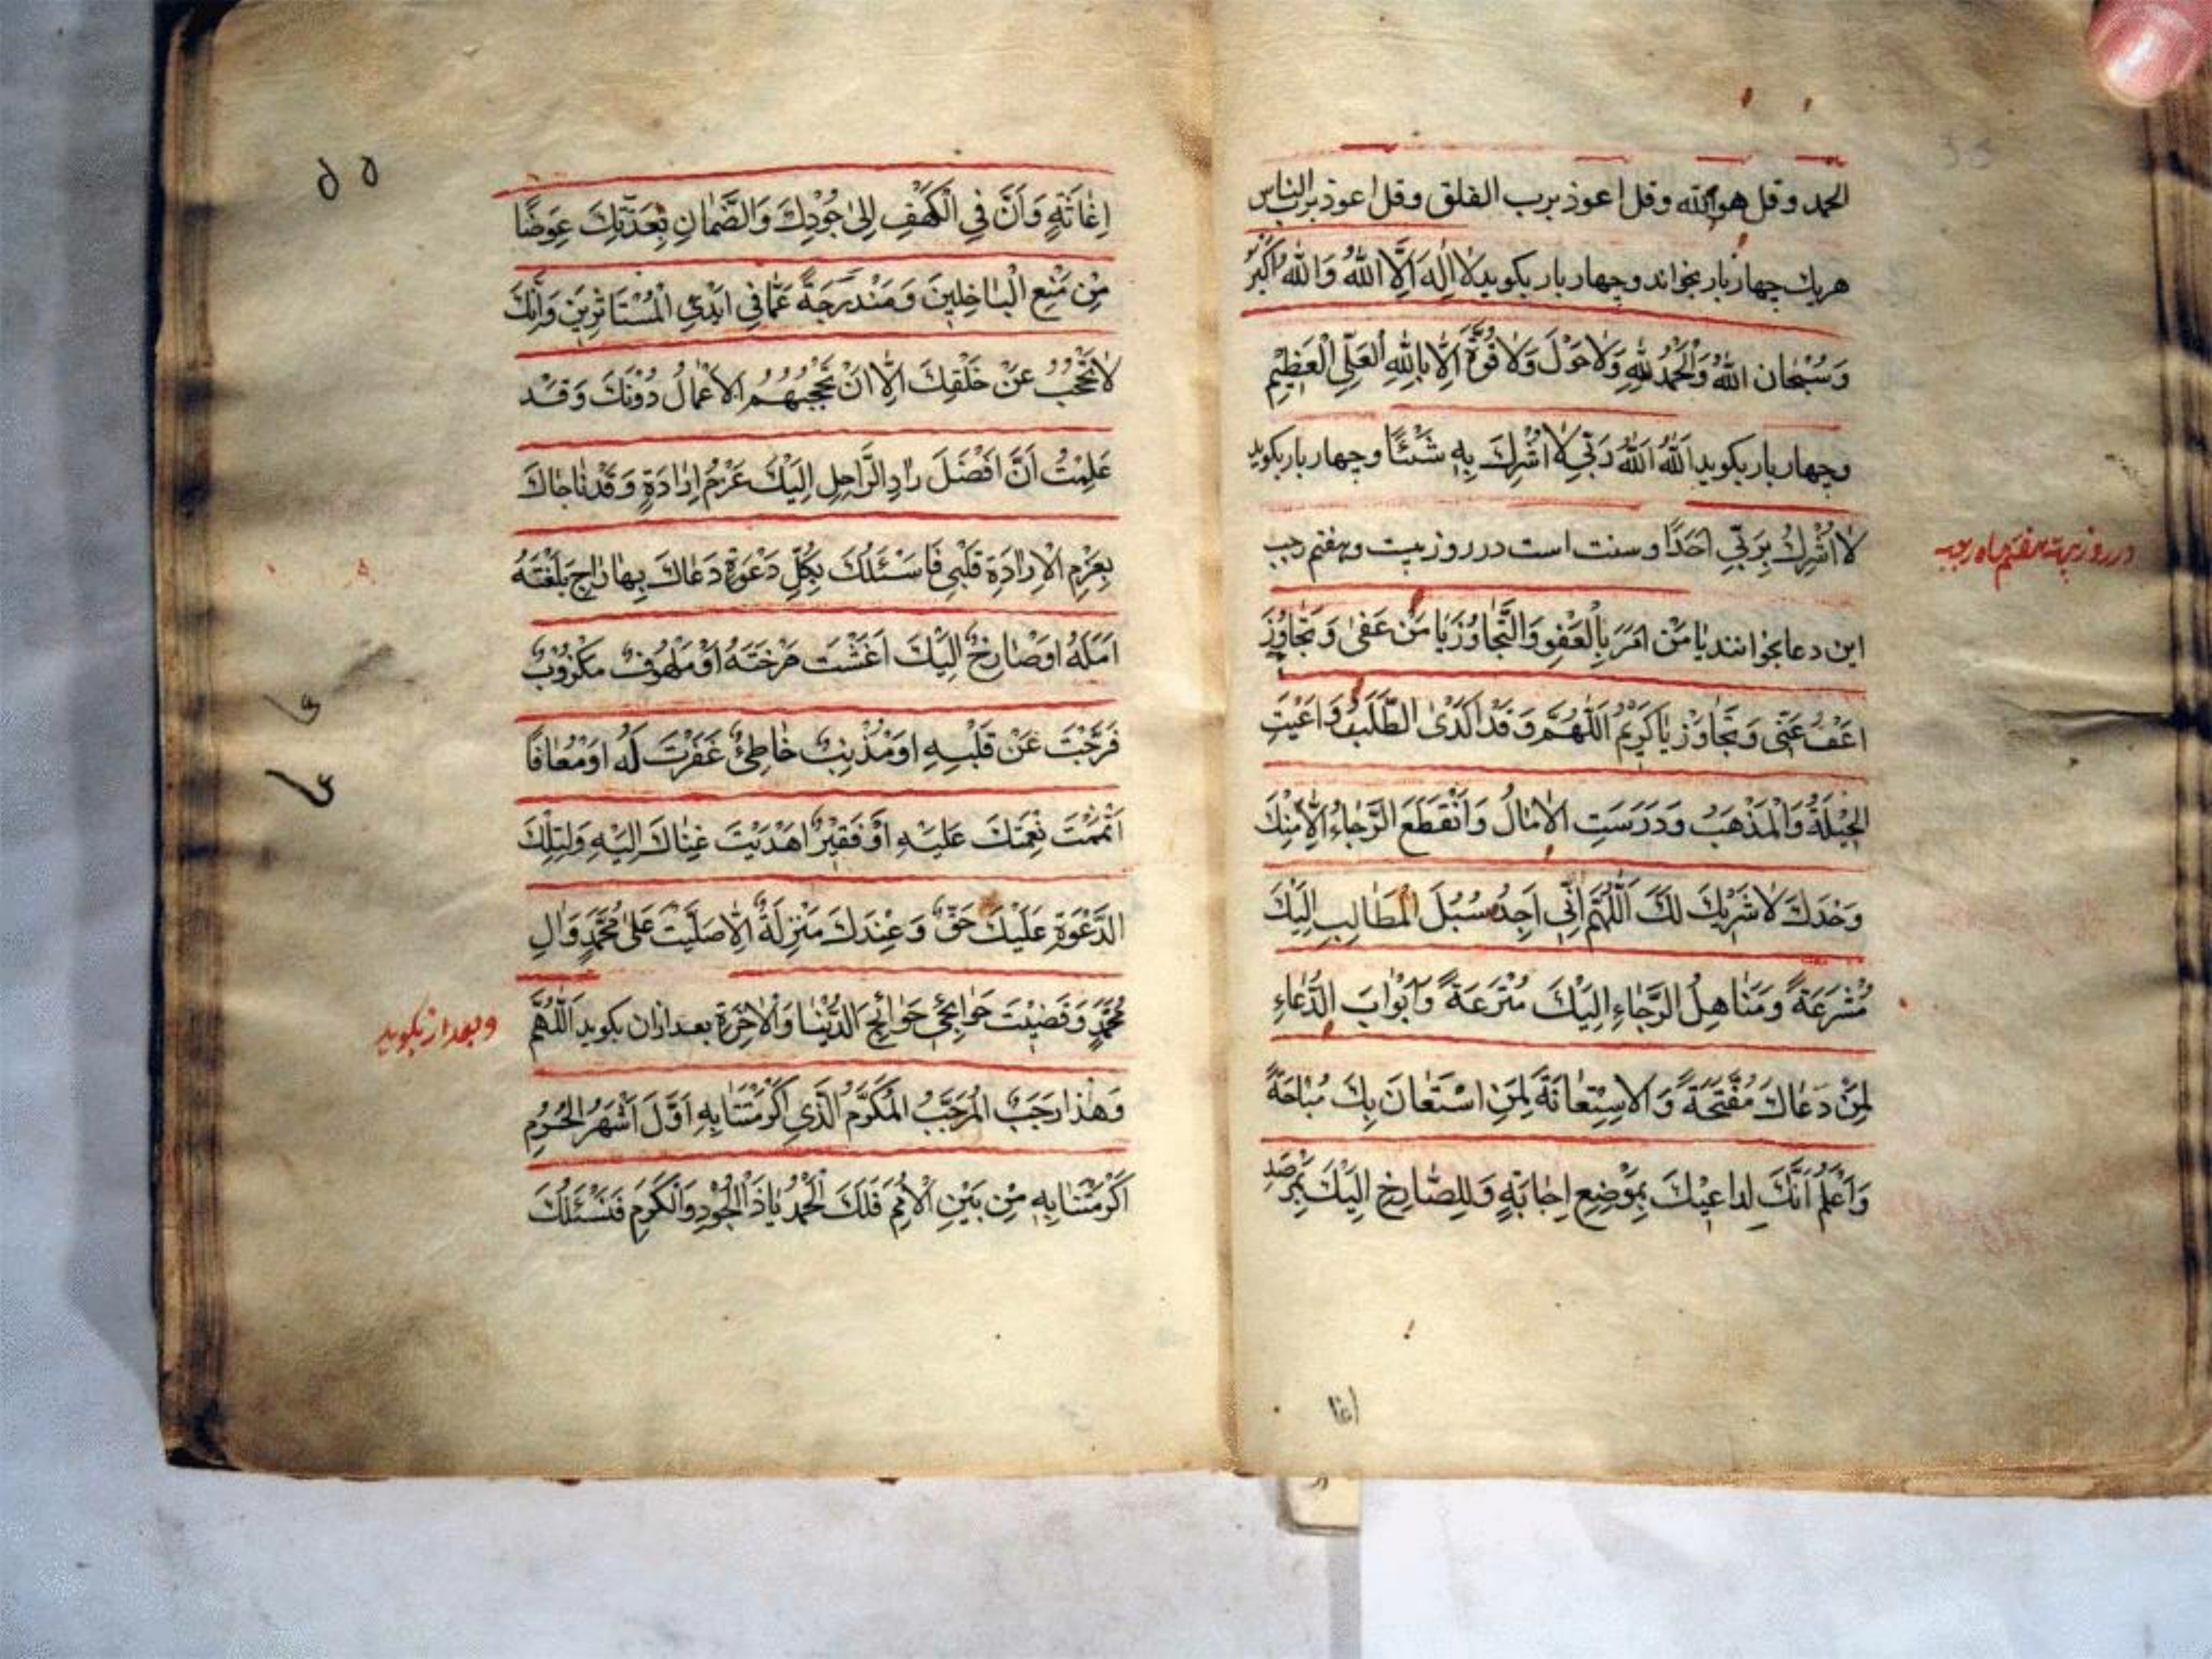 الحمد وقل هو الله وقل اعوذ برب الفلق وقل اعوذ برب الناس
هريك چهار بار بخواند وچهار بار بكويد لَا اِلٰهَ اِلَّا اللّٰهُ وَاللّٰهُ اَكْبَرُ
وَسُبْحَانَ اللّٰهِ وَالْحَمْدُ لِلّٰهِ وَلَا حَوْلَ وَلَا قُوَّةَ اِلَّا بِاللّٰهِ الْعَلِىِّ الْعَظِيْمِ
وچهار بار بكويد اَللّٰهُ اَللّٰهُ رَبِّي لَا اُشْرِكُ بِهِ شَيْئًا وچهار بار بكويد
لَا اُشْرِكُ بِرَبِّي اَحَدًا وسنت است در روز بيست وهفتم رجب
در روز بيست هفتم ماه رجب
اين دعا بخوانند يَا مَنْ اَمَرَ بِالْعَفْوِ وَالتَّجَاوُزِ يَا مَنْ عَفٰى وَتَجَاوَزَ
اعْفُ عَنِّى وَتَجَاوَزْ يَا كَرِيْمُ اَللّٰهُمَّ وَقَدْ اَكْدَىٰ الطَّلَبُ وَاَعْيَتِ
الْحِيْلَةُ وَالْمَذْهَبُ وَدَرَسَتِ الْاٰمَالُ وَانْقَطَعَ الرَّجَاءُ اِلَّا مِنْكَ
وَحْدَكَ لَا شَرِيْكَ لَكَ اَللّٰهُمَّ اِنِّي اَجِدُ سُبُلَ الْمَطَالِبِ اِلَيْكَ
مُشْرَعَةً وَمَنَاهِلُ الرَّجَاءِ اِلَيْكَ مُتْرَعَةً وَاَبْوَابَ الدُّعَاءِ
لِمَنْ دَعَاكَ مُفَتَّحَةً وَالْاِسْتِعَانَةَ لِمَنِ اسْتَعَانَ بِكَ مُبَاحَةً
وَاَعْلَمُ اَنَّكَ لِدَاعِيْكَ بِمَوْضِعِ اِجَابَةٍ وَلِلصَّارِخِ اِلَيْكَ بِمَرْصَدِ
اغا
٥٥
اِغَاثَةٍ وَاَنَّ فِي الْكَهْفِ اِلىٰ جُوْدِكَ وَالضَّمَانِ بِعِدَتِكَ عِوَضًا
مِنْ مَنْعِ الْبَاخِلِيْنَ وَمَنْدَرَجَةً عَمَّا فِي اَيْدِي الْمُسْتَاثِرِيْنَ وَاَنَّكَ
لَا تَحْجُبُ عَنْ خَلْقِكَ اِلَّا اَنْ تَحْجُبَهُمُ الْاَعْمَالُ دُوْنَكَ وَقَدْ
عَلِمْتُ اَنَّ اَفْضَلَ زَادِ الرَّاحِلِ اِلَيْكَ عَزْمُ اِرَادَةٍ وَقَدْ نَاجَاكَ
بِعَزْمِ الْاِرَادَةِ قَلْبِي فَاَسْئَلُكَ بِكُلِّ دَعْوَةٍ دَعَاكَ بِهَا رَاجٍ بَلَغْتَهُ
اَمَلَهُ اَوْ صَارِخٌ اِلَيْكَ اَغَثْتَ صَرْخَتَهُ اَوْ مَلْهُوْفٌ مَكْرُوْبٌ
فَرَّجْتَ عَنْ قَلْبِهِ اَوْ مُذْنِبٌ خَاطِئٌ غَفَرْتَ لَهُ اَوْ مُعَافًا
اَتْمَمْتَ نِعْمَتَكَ عَلَيْهِ اَوْ فَقِيْرٌ اَهْدَيْتَ غِنَاكَ اِلَيْهِ وَلِتِلْكَ
الدَّعْوَةِ عَلَيْكَ حَقٌّ وَعِنْدَكَ مَنْزِلَةٌ اِلَّا صَلَّيْتَ عَلىٰ مُحَمَّدٍ وَاٰلِ
مُحَمَّدٍ وَقَضَيْتَ حَوَائِجِي حَوَائِجَ الدُّنْيَا وَالْاٰخِرَةِ بعد ازان بكويد اَللّٰهُمَّ
وبعد از بكويد
وَهٰذَا رَجَبٌ الْمُرَجَّبُ الْمُكَرَّمُ الَّذِي اَكْرَمْتَنَا بِهِ اَوَّلَ اَشْهُرِ الْحُرُمِ
اَكْرَمْتَنَا بِهِ مِنْ بَيْنِ الْاُمَمِ فَلَكَ الْحَمْدُ يَا ذَا الْجُوْدِ وَالْكَرَمِ فَنَسْئَلُكَ